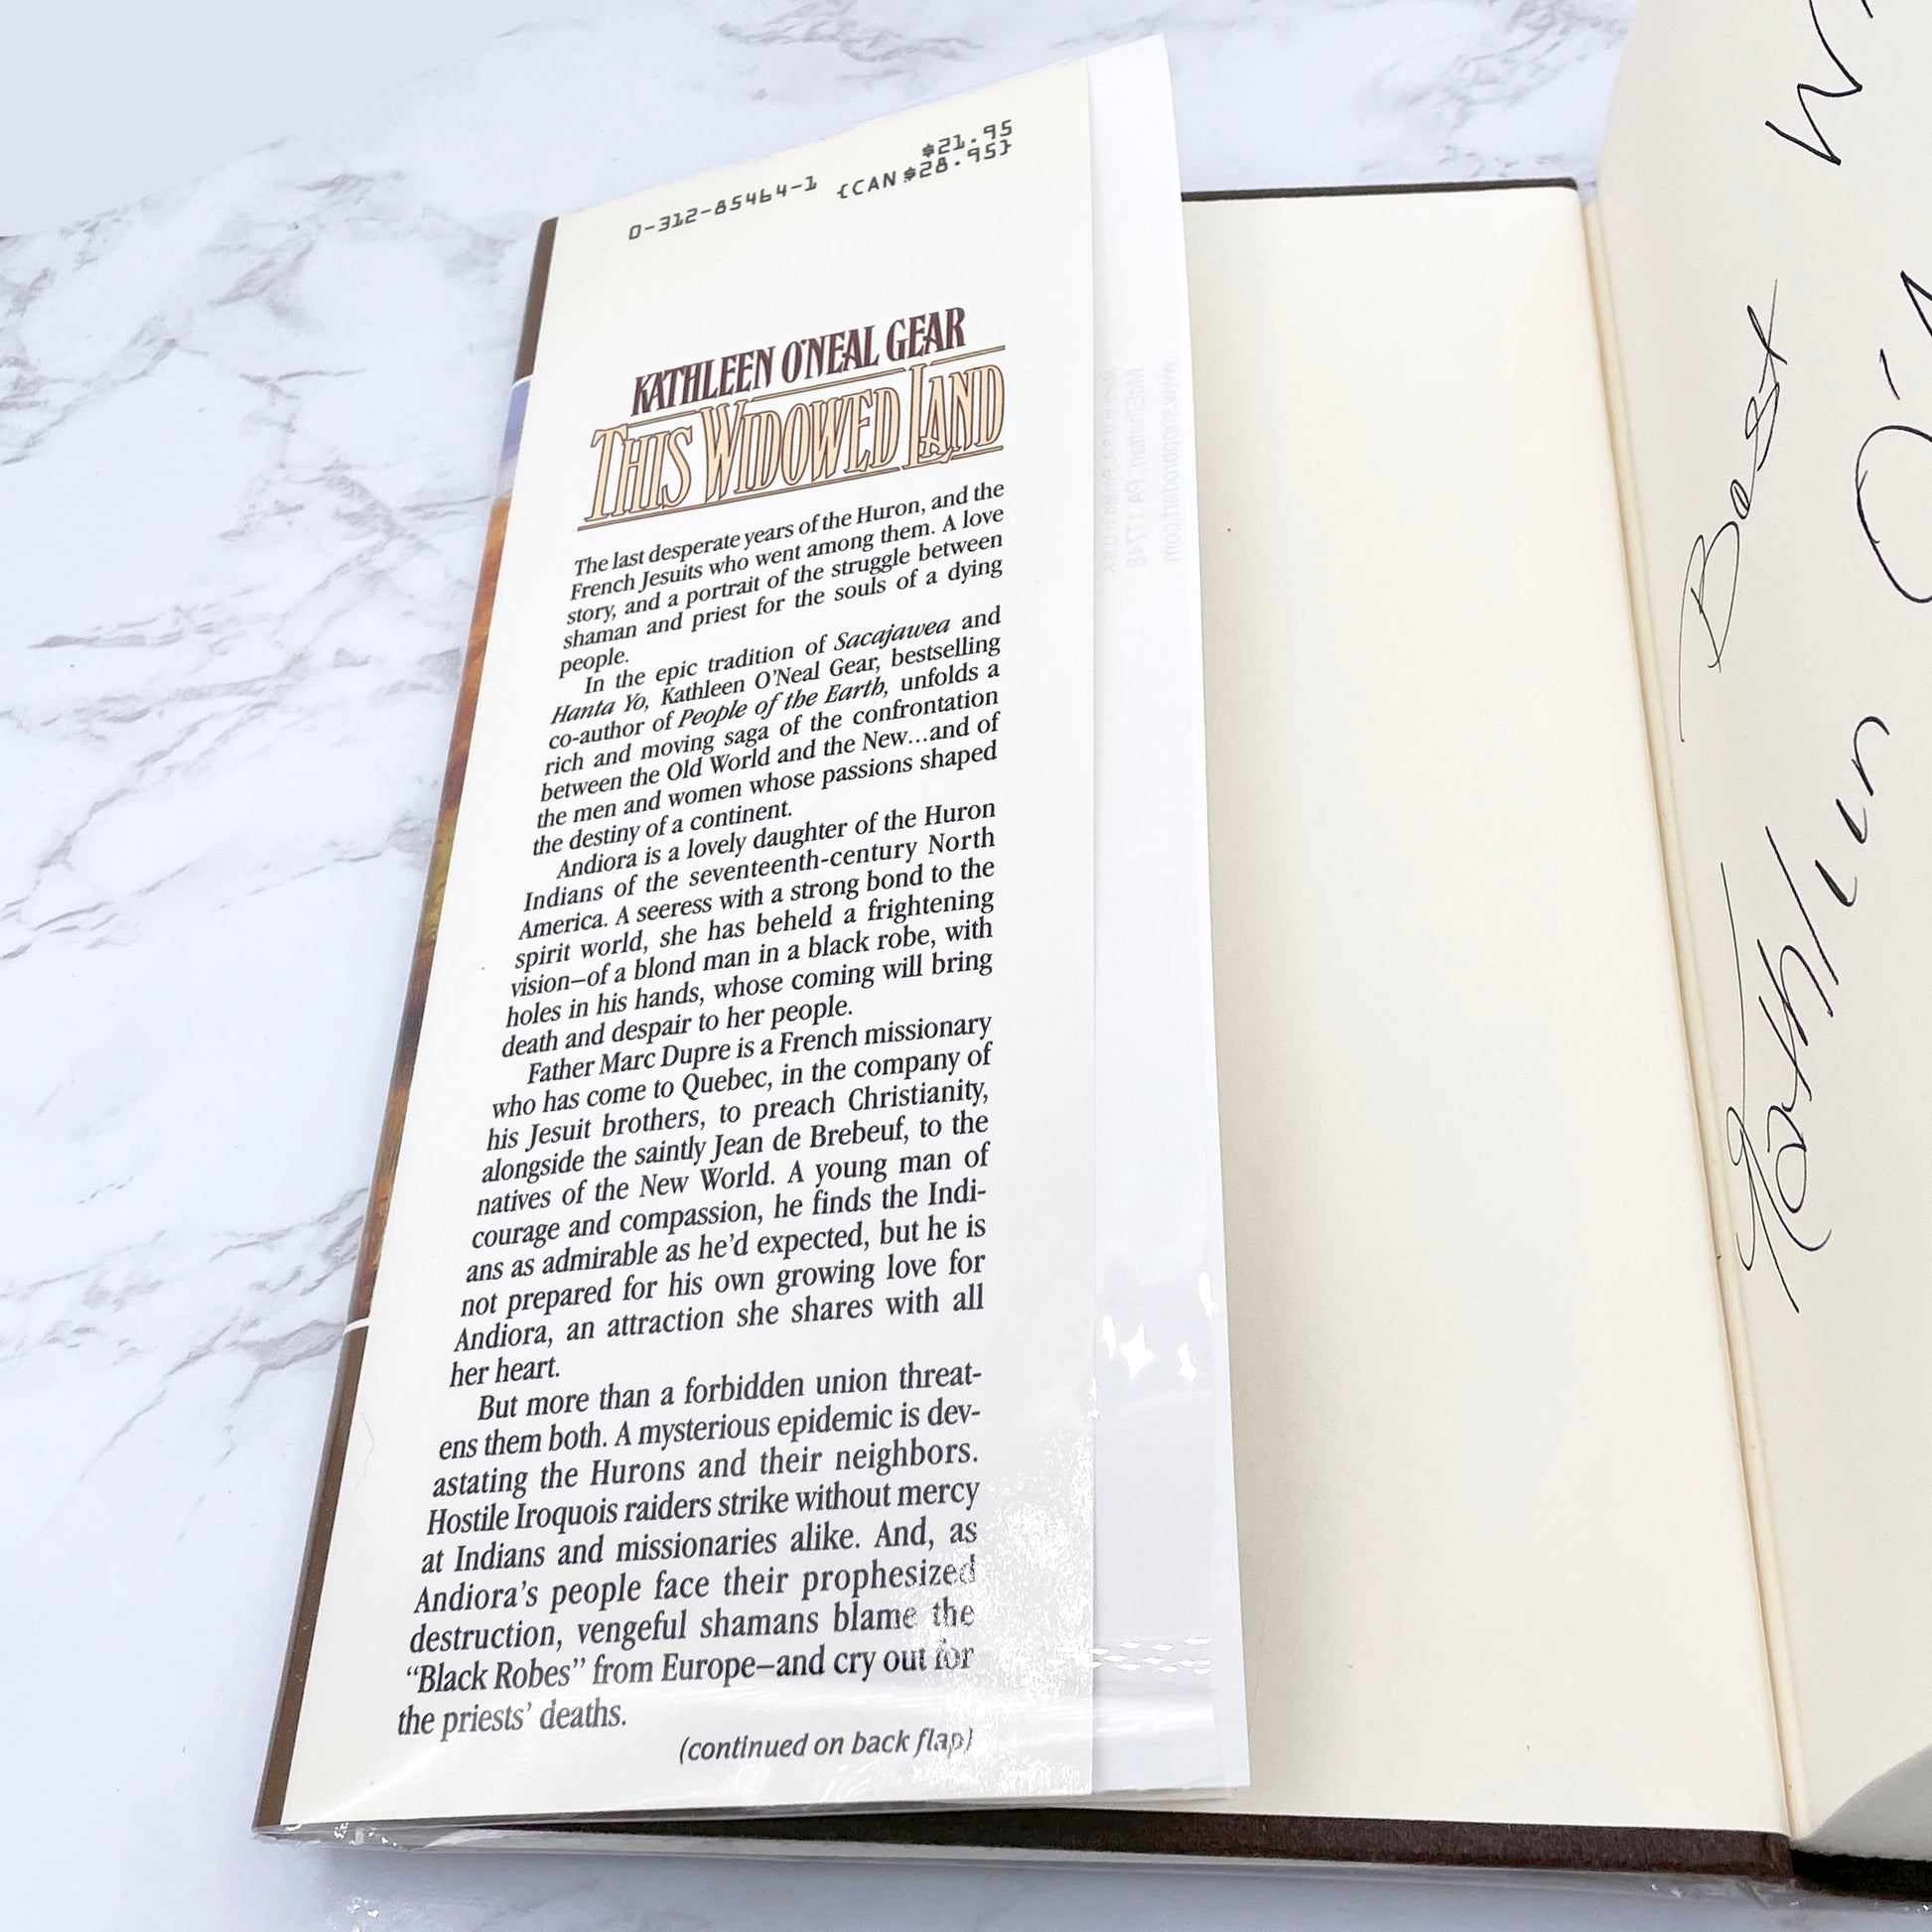 $21.95
0-312-85464-1 {CAN $28.95}
KATHLEEN O'NEAL GEAR
THIS WIDOWED LAND
The last desperate years of the Huron, and the
French Jesuits who went among them. A love
story, and a portrait of the struggle between
shaman and priest for the souls of a dying
people.
In the epic tradition of Sacajawea and
Hanta Yo, Kathleen O'Neal Gear, bestselling
co-author of People of the Earth, unfolds a
rich and moving saga of the confrontation
between the Old World and the New...and of
the men and women whose passions shaped
the destiny of a continent.
Andiora is a lovely daughter of the Huron
Indians of the seventeenth-century North
America. A seeress with a strong bond to the
spirit world, she has beheld a frightening
vision–of a blond man in a black robe, with
holes in his hands, whose coming will bring
death and despair to her people.
Father Marc Dupre is a French missionary
who has come to Quebec, in the company of
his Jesuit brothers, to preach Christianity,
alongside the saintly Jean de Brebeuf, to the
natives of the New World. A young man of
courage and compassion, he finds the Indi-
ans as admirable as he'd expected, but he is
not prepared for his own growing love for
Andiora, an attraction she shares with all
her heart.
But more than a forbidden union threat-
ens them both. A mysterious epidemic is dev-
astating the Hurons and their neighbors.
Hostile Iroquois raiders strike without mercy
at Indians and missionaries alike. And, as
Andiora's people face their prophesized
destruction, vengeful shamans blame the
“Black Robes” from Europe–and cry out for
the priests' deaths.
(continued on back flap)
Best
Kathleen